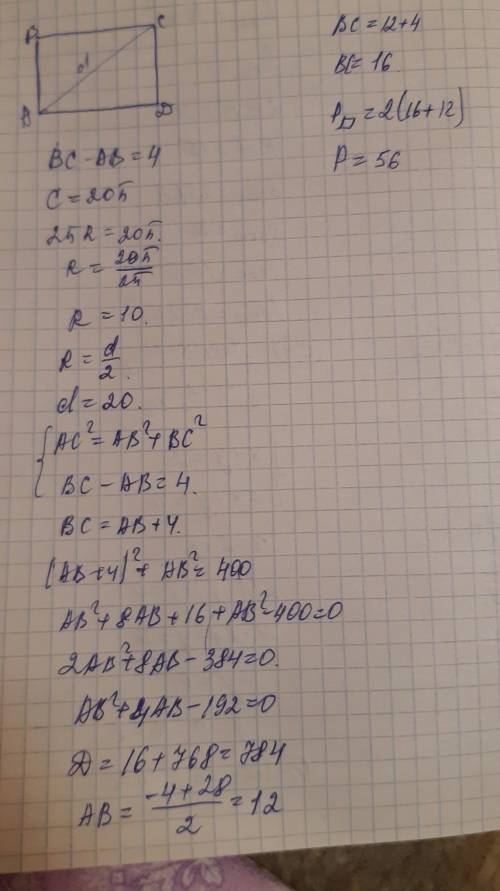 B C
d
A D
BC - AB = 4
C = 20π
2πR = 20π.
R = 20π/2π
R = 10.
R = d/2.
d = 20.
{ AC² = AB² + BC²
BC - AB = 4.
BC = AB + 4.
(AB + 4)² + AB² = 400
AB² + 8AB + 16 + AB² - 400 = 0
2AB² + 8AB - 384 = 0.
AB² + 4AB - 192 = 0
D = 16 + 768 = 784
AB = (-4 + 28)/2 = 12
BC = 12 + 4
BC = 16
P▱ = 2(16 + 12)
P = 56